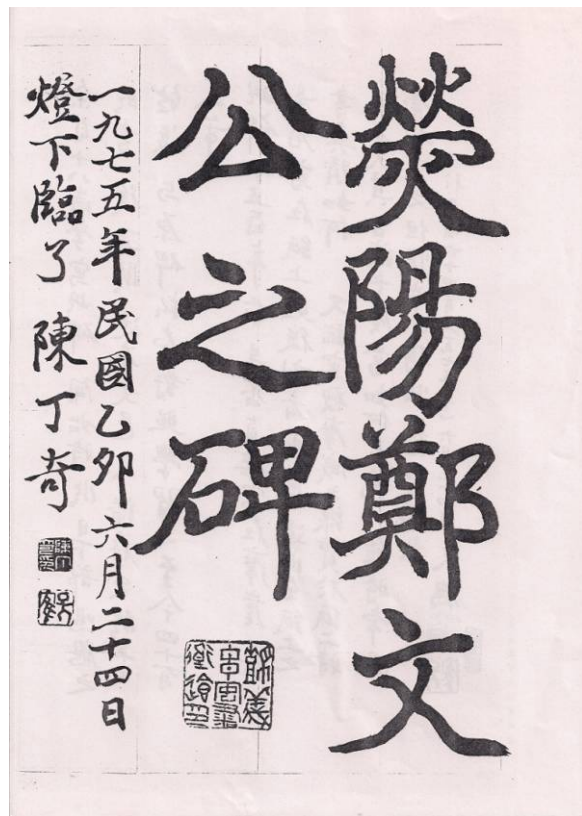 熒陽鄭文
公之碑
一九七五年民國乙卯六月二十四日
燈下臨了 陳丁奇